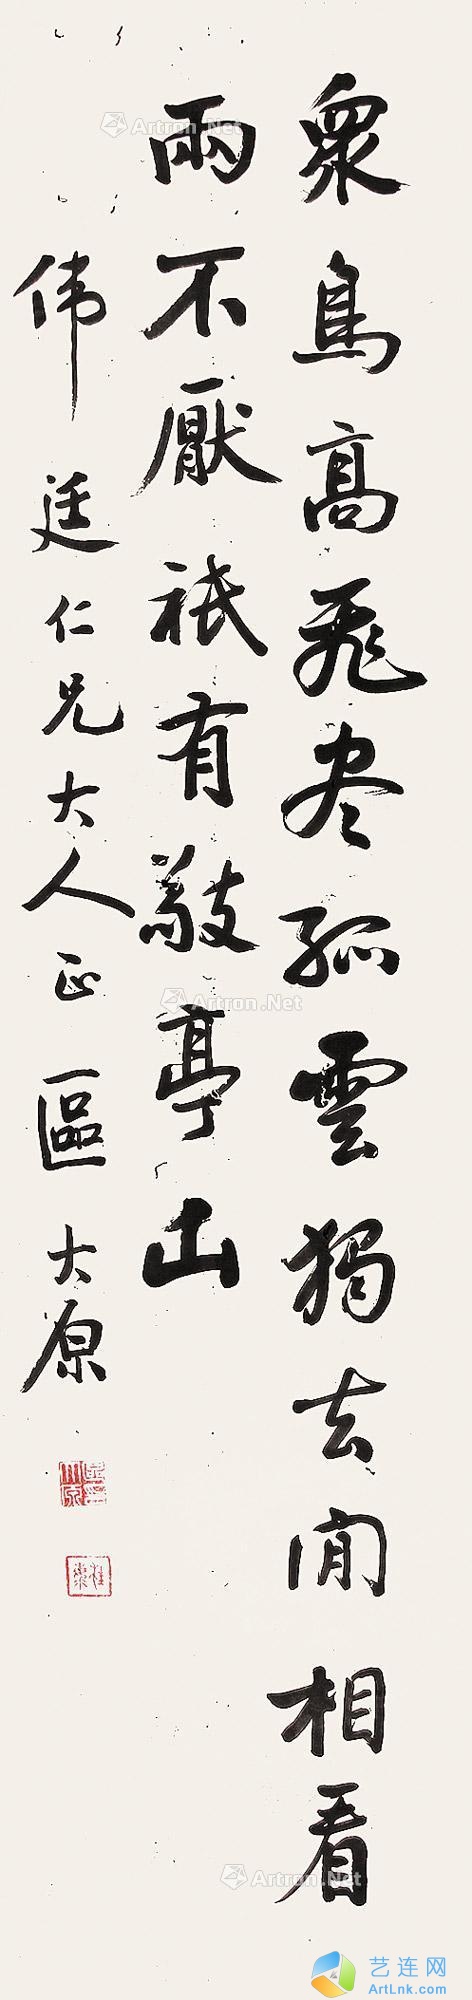 衆鳥高飛盡孤雲獨去閒相看
兩不厭祇有敬亭山
伟廷仁兄大人正 區大原
Artron.Net
Artron.Net
Artron.Net
Artron.Net
Artron.Net
艺连网
ArtLnk.com